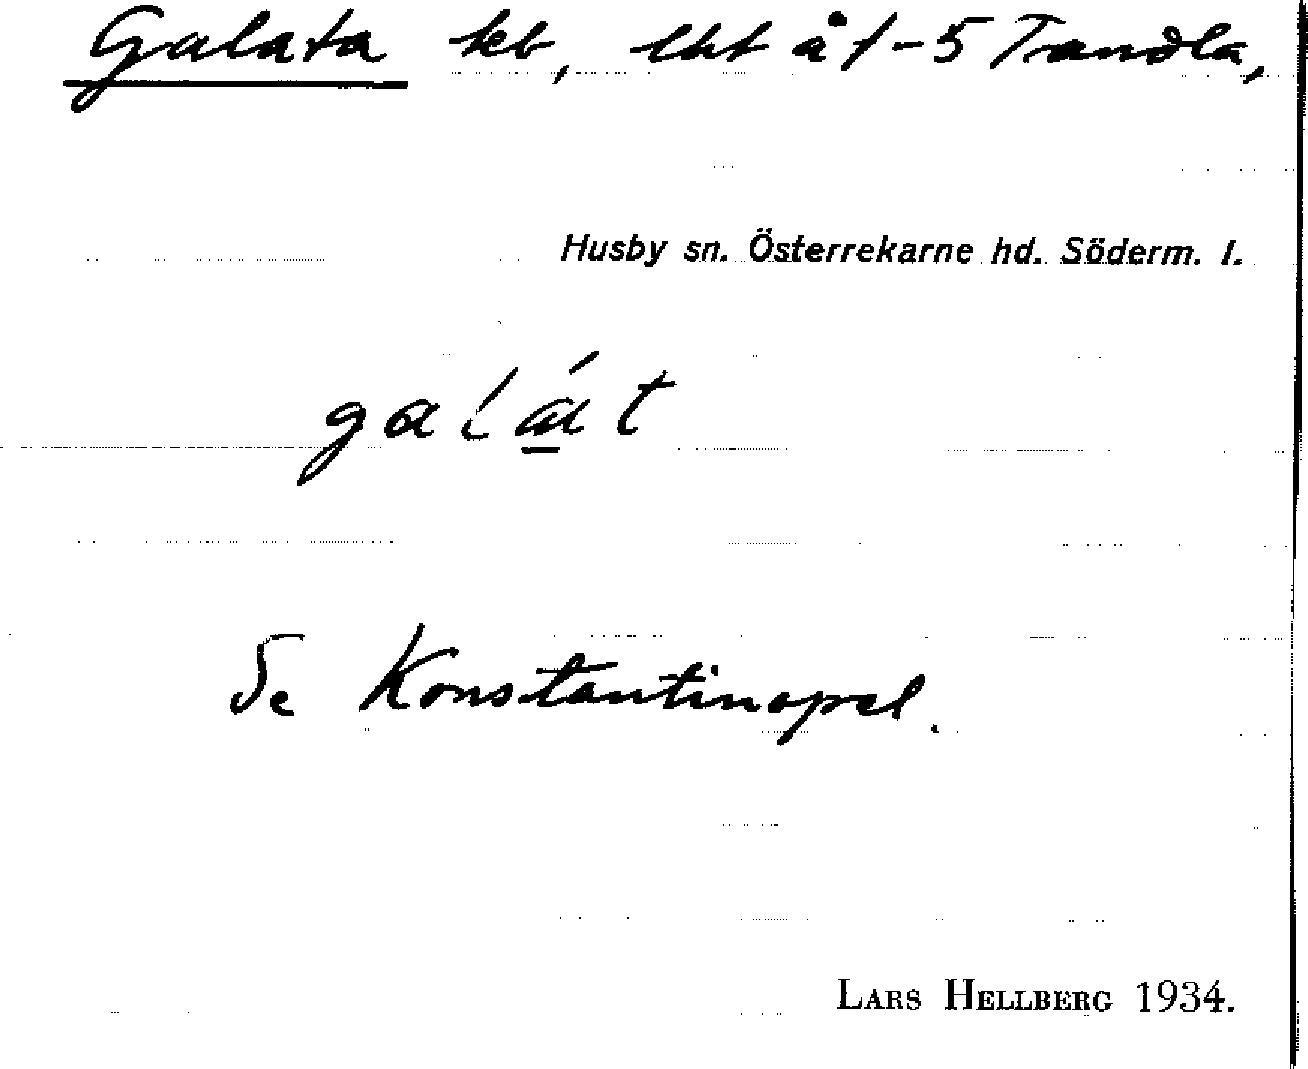 Galata teb, lht å 1-5 Tandla,
Husby sn. Österrekarne hd. Söderm. l.
galát
Se Konstantinopel.
LARS HELLBERG 1934.